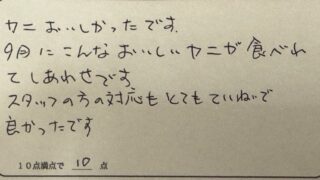 カニおいしかったです.
9月にこんなおいしいカニが食べれ
てしあわせです
スタッフの方の対応もとてもていねいで
良かったです
10点満点で 10 点